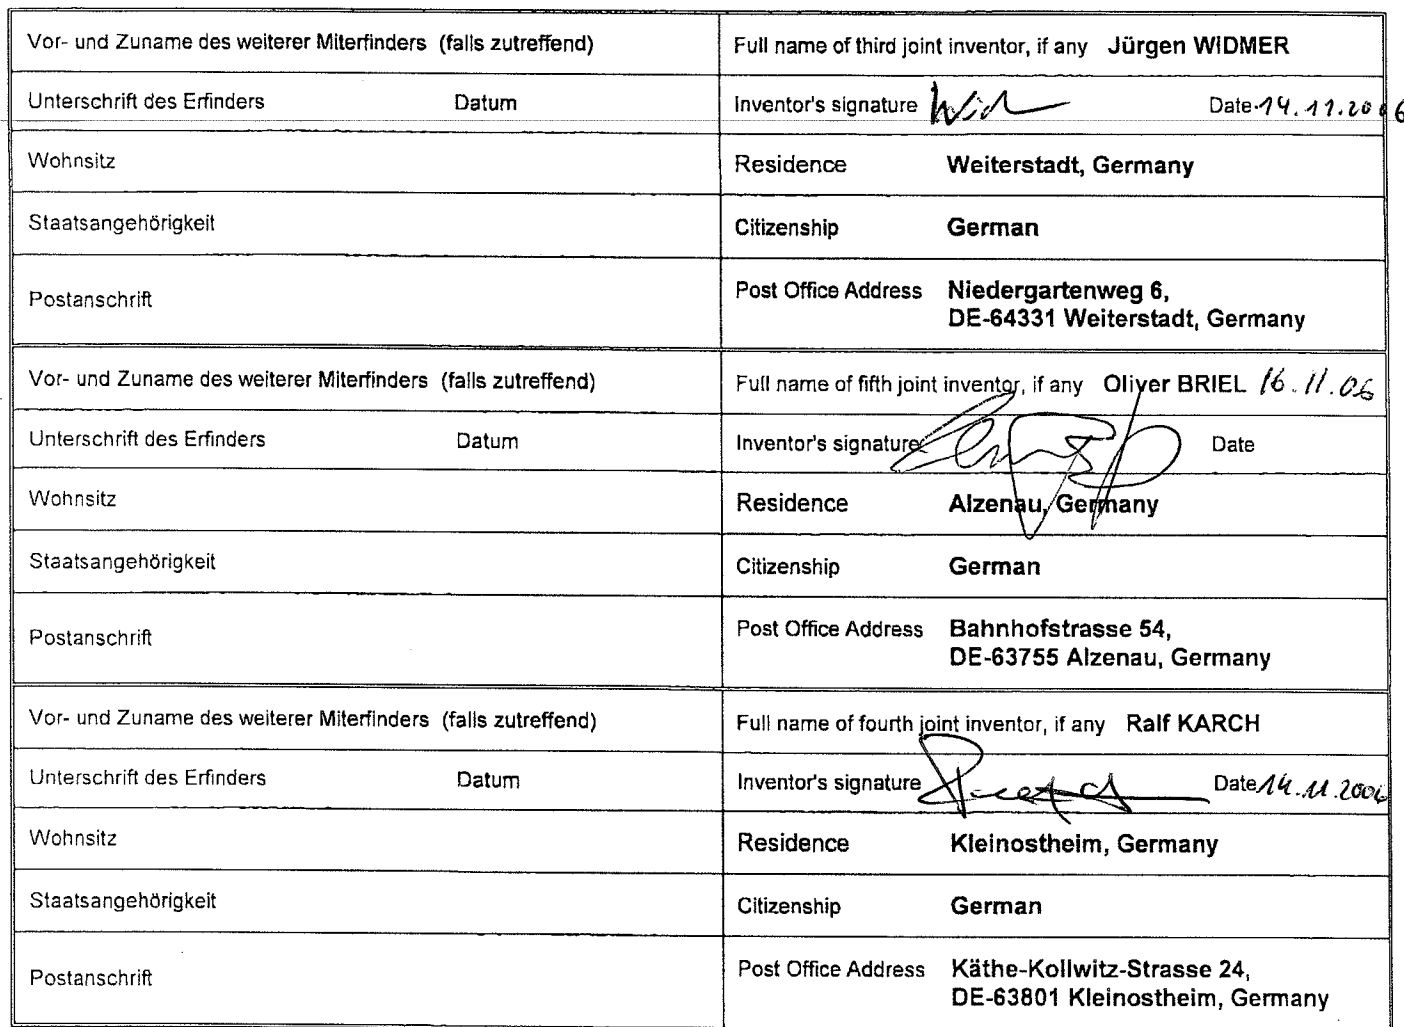 Vor- und Zuname des weiterer Miterfinders (falls zutreffend) Full name of third joint inventor, if any Jürgen WIDMER
Unterschrift des Erfinders Datum Inventor's signature Date 14.11.2006
Wohnsitz Residence Weiterstadt, Germany
Staatsangehörigkeit Citizenship German
Postanschrift Post Office Address Niedergartenweg 6,
DE-64331 Weiterstadt, Germany
Vor- und Zuname des weiterer Miterfinders (falls zutreffend) Full name of fifth joint inventor, if any Oliver BRIEL 16.11.06
Unterschrift des Erfinders Datum Inventor's signature Date
Wohnsitz Residence Alzenau, Germany
Staatsangehörigkeit Citizenship German
Postanschrift Post Office Address Bahnhofstrasse 54,
DE-63755 Alzenau, Germany
Vor- und Zuname des weiterer Miterfinders (falls zutreffend) Full name of fourth joint inventor, if any Ralf KARCH
Unterschrift des Erfinders Datum Inventor's signature Date 14.11.2006
Wohnsitz Residence Kleinostheim, Germany
Staatsangehörigkeit Citizenship German
Postanschrift Post Office Address Käthe-Kollwitz-Strasse 24,
DE-63801 Kleinostheim, Germany